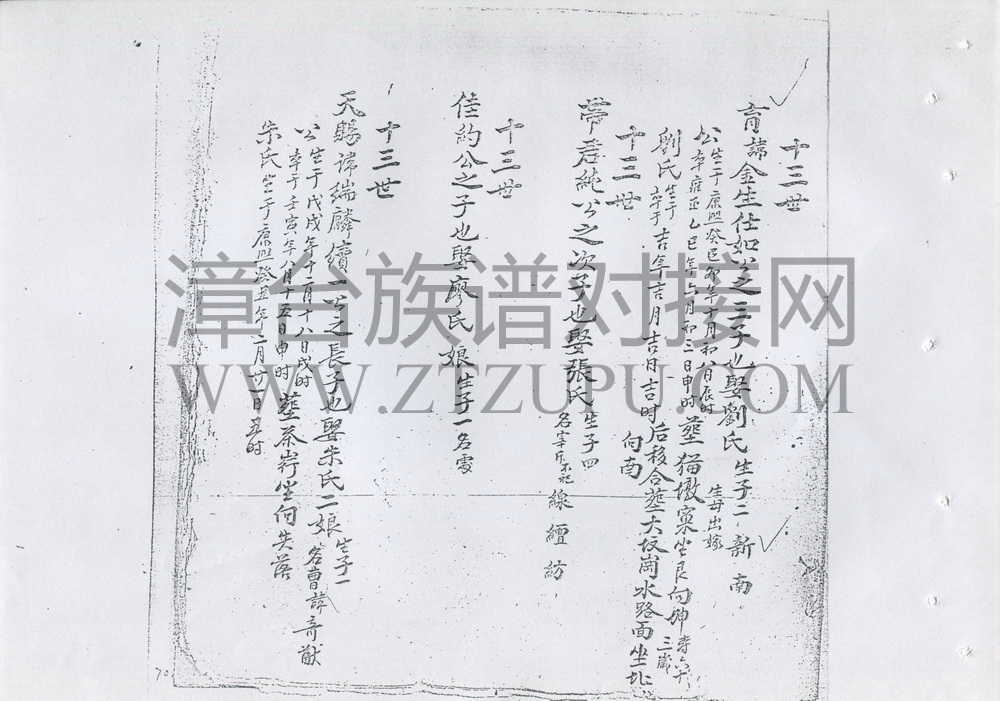 十三世
育諱金生仕如公之三子也娶劉氏生子二 新 南
公生于康熙癸巳卯年十月初八日辰时
卒雍正乙巳年六月初三日申时葬猫墩窠坐艮向坤寿六十三歲
生母出嫁
劉氏生于
卒于吉年吉月吉日吉时后移合葬大坂崗水路面坐北
向南
十三世
常君純公之次子也娶張氏生子四
線 繵 紡
十三世
佳約公之子也娶廖氏娘生子一名霞
十三世
天賜諱端麟續一公之長子也娶朱氏二娘生子一名曹諱奇猷
公生于戊戌年十二月十八日戌时
卒于壬寅年八月十五日申时葬茶坐向失落
朱氏生于康熙癸丑年二月廿一日丑时
70
漳台族谱对接网
WWW.ZTZUPU.COM